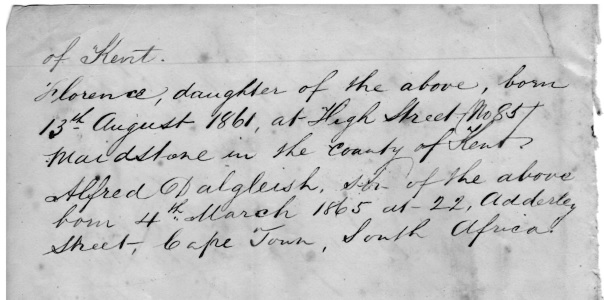 of Kent.
Florence, daughter of the above, born
13th August 1861, at High Street /No 85/
Maidstone in the county of Kent
Alfred Dalgleish, son of the above
born 4th March 1865 at 22, Adderley
Street, Cape Town, South Africa.